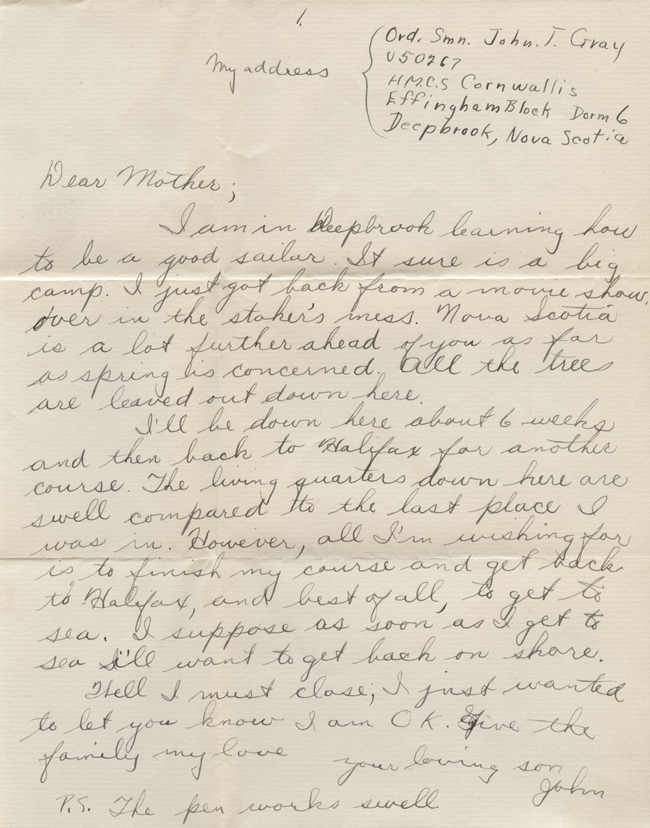 1.
My address
Ord. Smn. John. T. Gray
V50267
H.M.C.S Cornwallis
Effingham Block Dorm 6
Deepbrook, Nova Scotia
Dear Mother;
I am in Deepbrook learning how
to be a good sailar. It sure is a big
camp. I just got back from a movie show,
over in the stoker's mess. Nova Scotia
is a lot further ahead of you as far
as spring is concerned. All the trees
are leaved out down here.
I'll be down here about 6 weeks
and then back to Halifax for another
course. The living quarters down here are
swell compared to the last place I
was in. However, all I'm wishing for
is to finish my course and get back
to Halifax, and best of all, to get to
sea. I suppose as soon as I get to
sea I'll want to get back on shore.
Well I must close; I just wanted
to let you know I am O K. Give the
family my love
your loving son
John
P.S. The pen works swell.